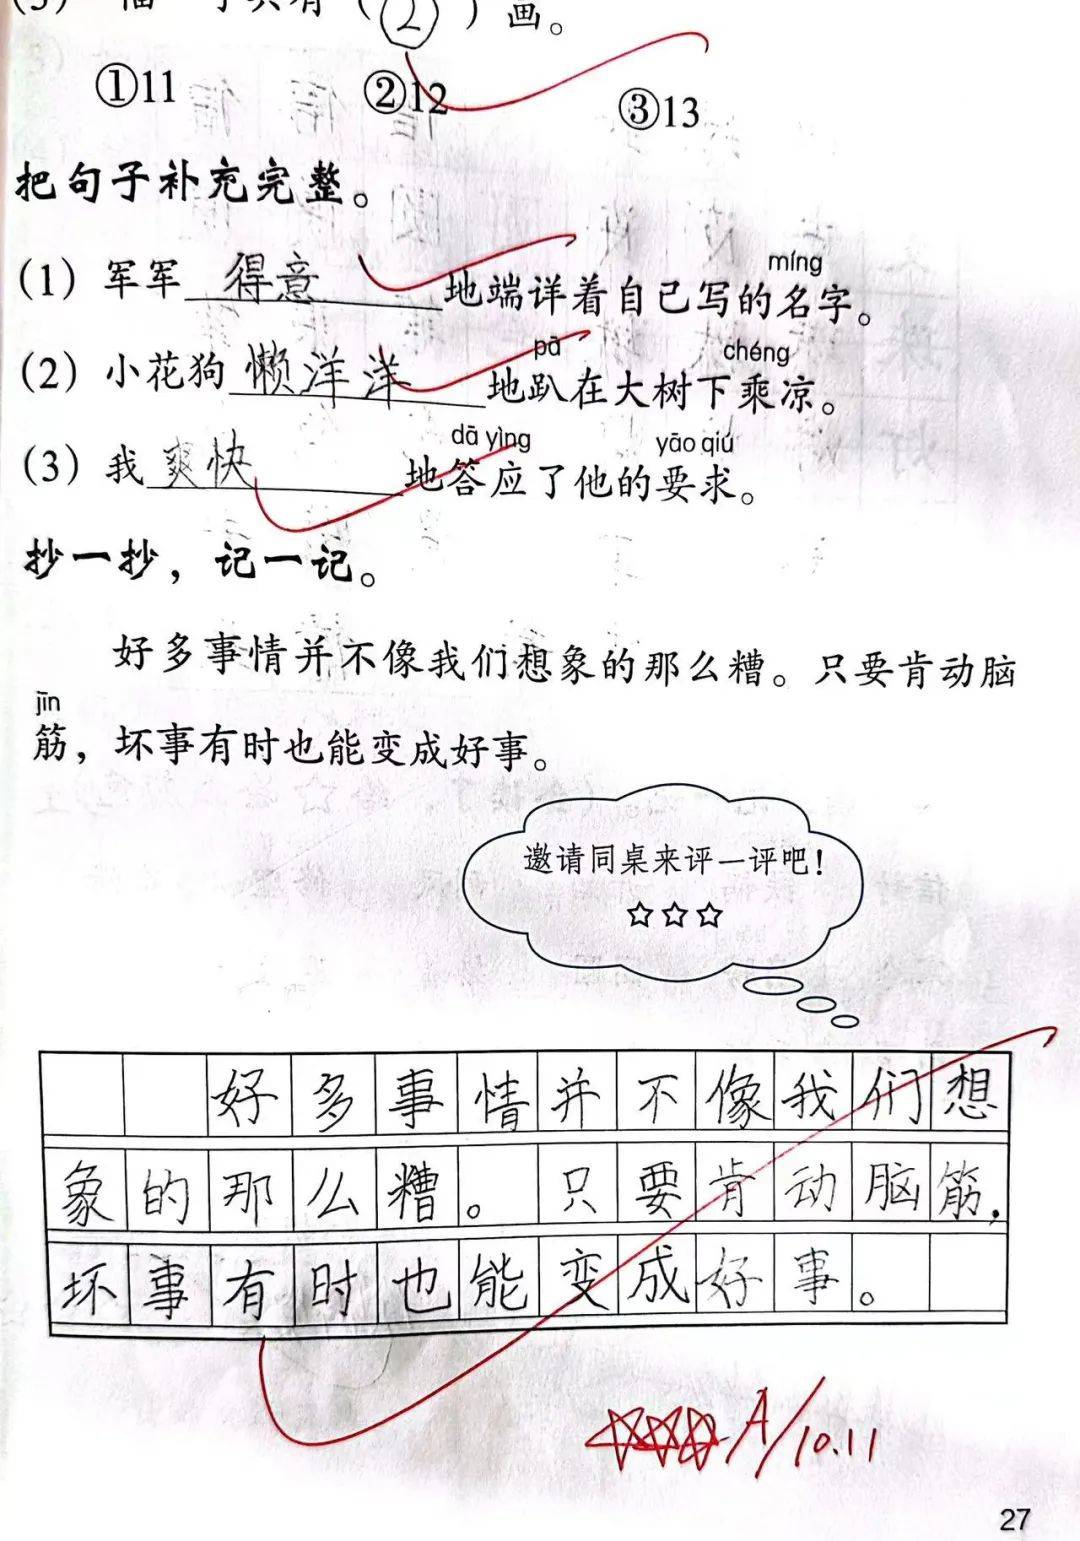 (2) 画。
①11 ②12 ③13
把句子补充完整。
míng
(1) 军军 得意 地端详着自己写的名字。
pā chéng
(2) 小花狗 懒洋洋 地趴在大树下乘凉。
dā yìng yāo qiú
(3) 我 爽快 地答应了他的要求。
抄一抄，记一记。
好多事情并不像我们想象的那么糟。只要肯动脑
jīn
筋，坏事有时也能变成好事。
邀请同桌来评一评吧！
☆☆☆
好多事情并不像我们想
象的那么糟。只要肯动脑筋，
坏事有时也能变成好事。
A/10.11
27